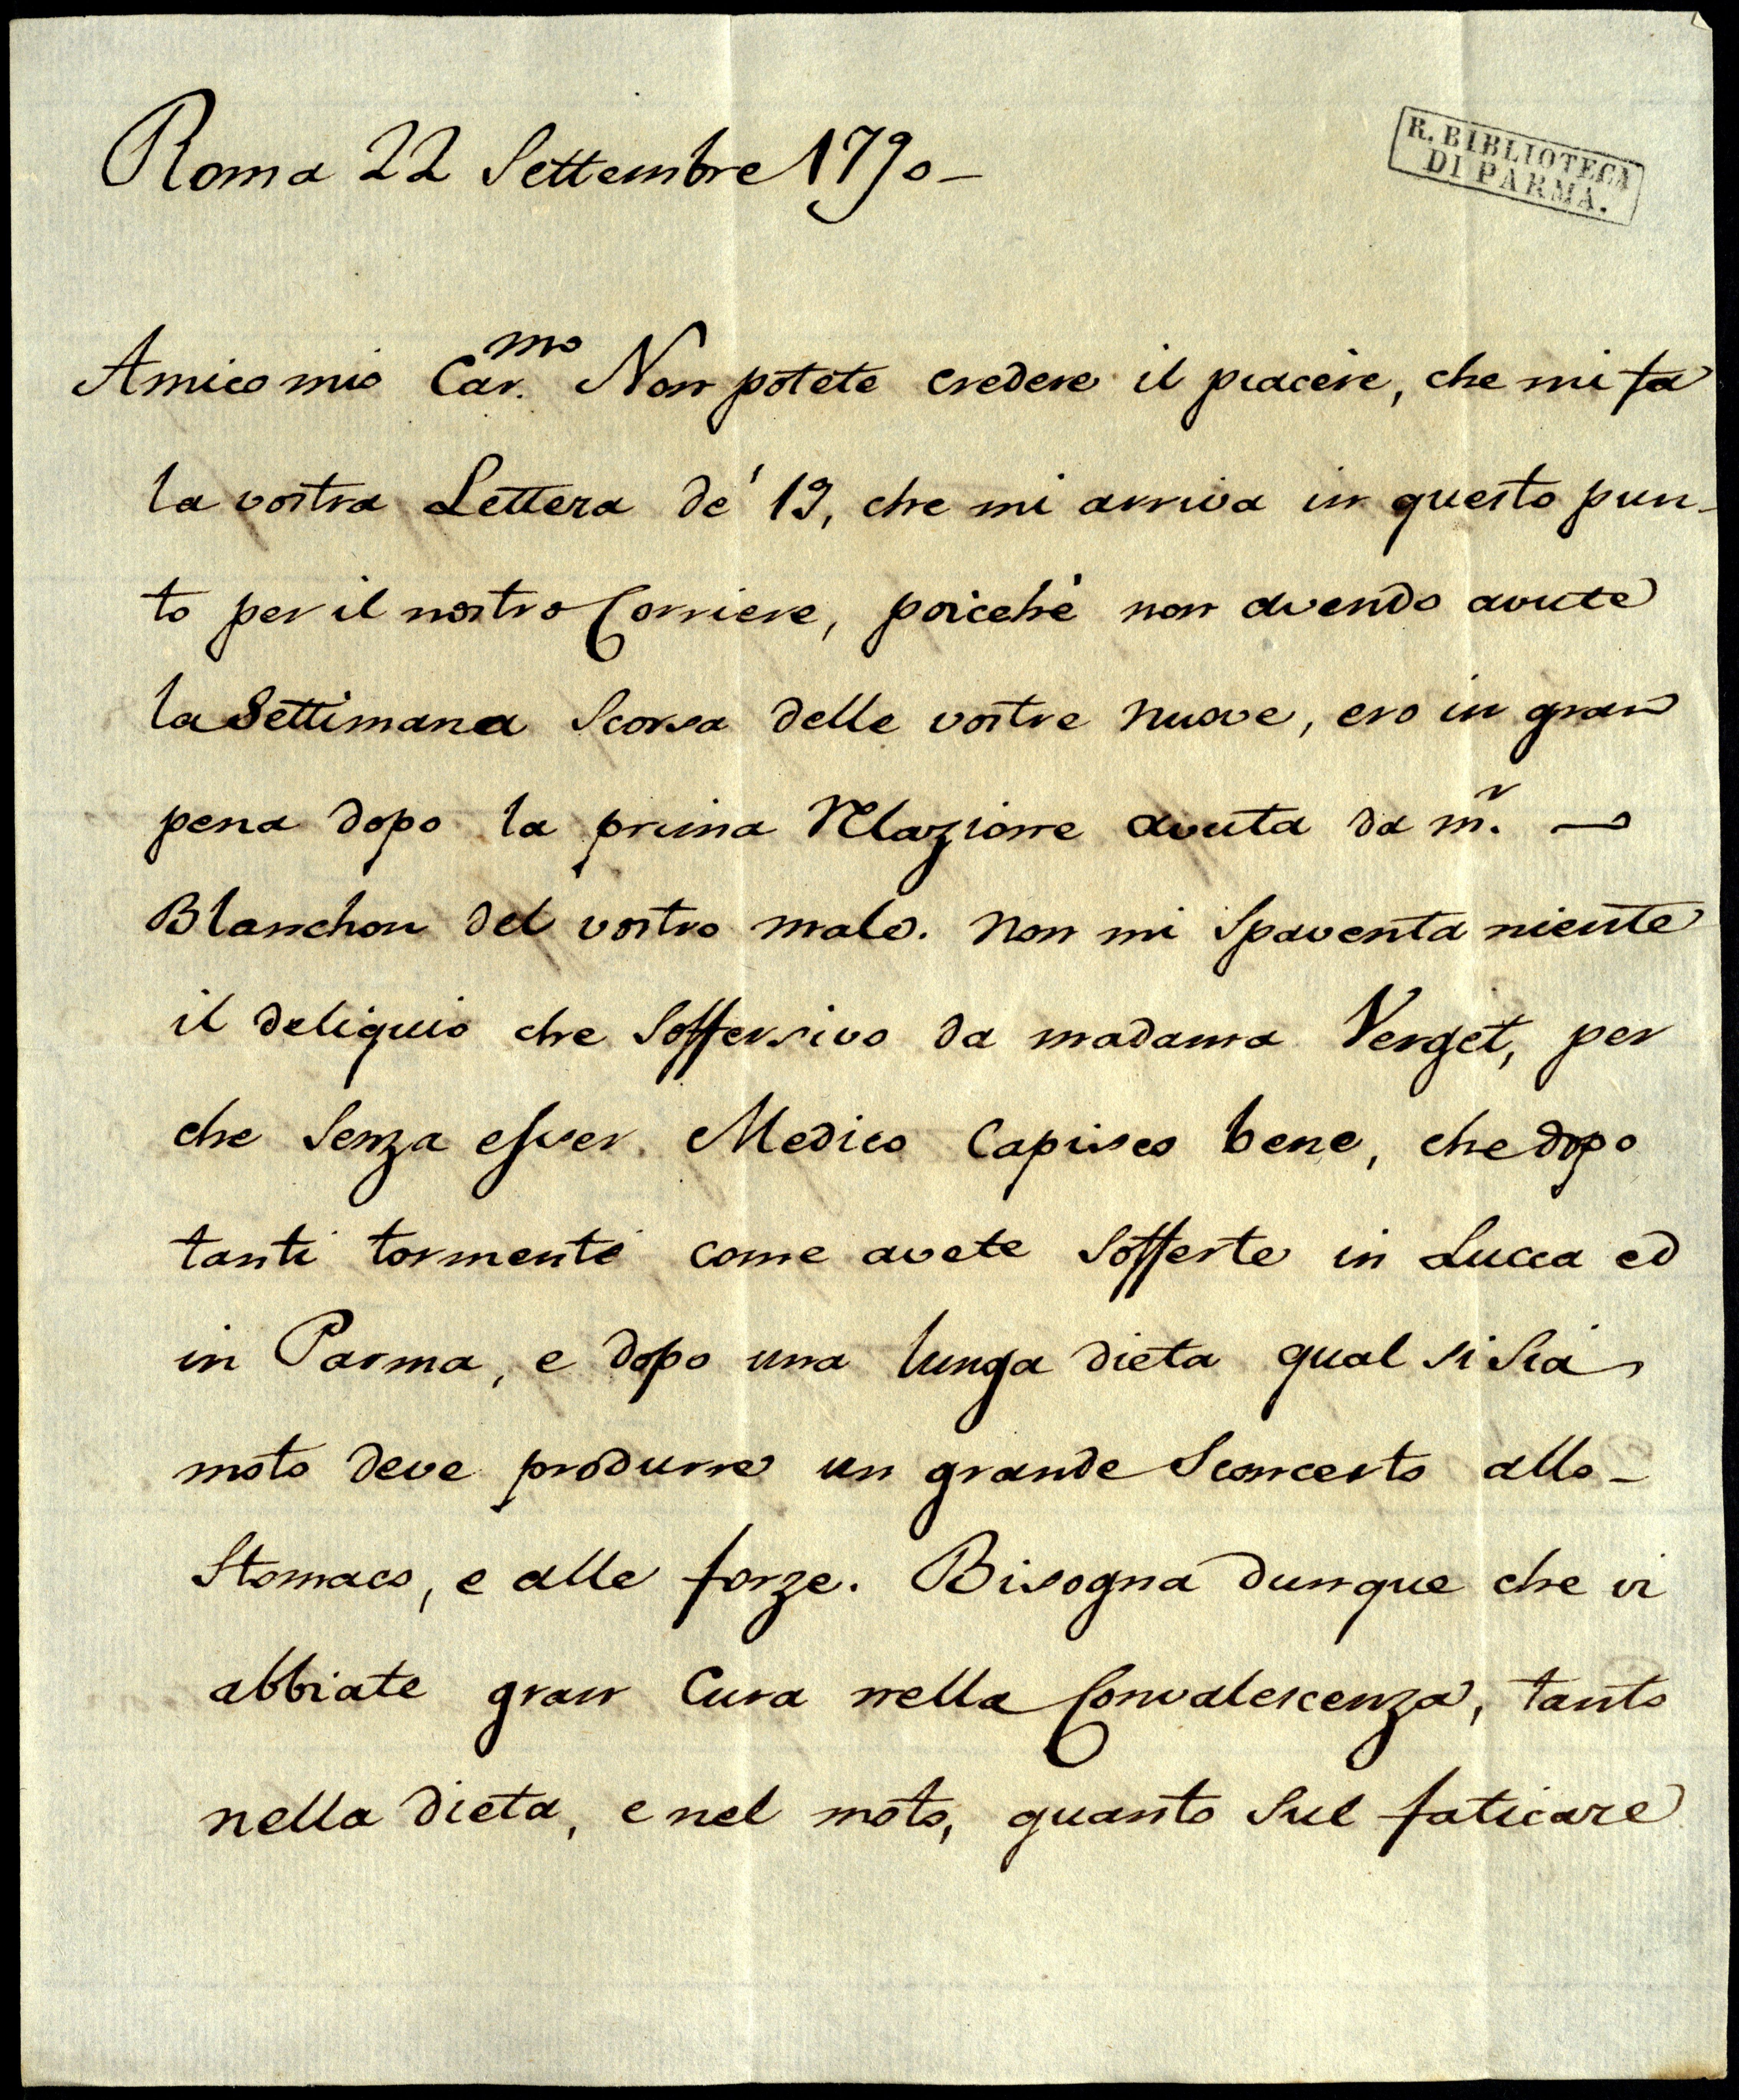 Roma 22 Settembre 1790-
R. BIBLIOTECA
DI PARMA.
Amico mio Car.mo Non potete credere il piacere, che mi fa
la vostra Lettera de' 19, che mi arriva in questo pun-
to per il nostro Corriere, poicchè non avendo avute
la Settimana Scorsa delle vostre nuove, ero in gran
pena dopo la prima relazione avuta da m.r —
Blanchon del vostro male. Non mi Spaventa niente
il deliquio che Soffersivo da madama Verget, per
che Senza esser Medico Capisco bene, che dopo
tanti tormenti come avete Sofferte in Lucca ed
in Parma, e dopo una lunga dieta qual si Sia
moto deve produrre un grande Sconcerto allo-
Stomaco, e alle forze. Bisogna dunque che vi
abbiate gran Cura nella Convalescenza, tanto
nella dieta, e nel moto, quanto Sul faticare